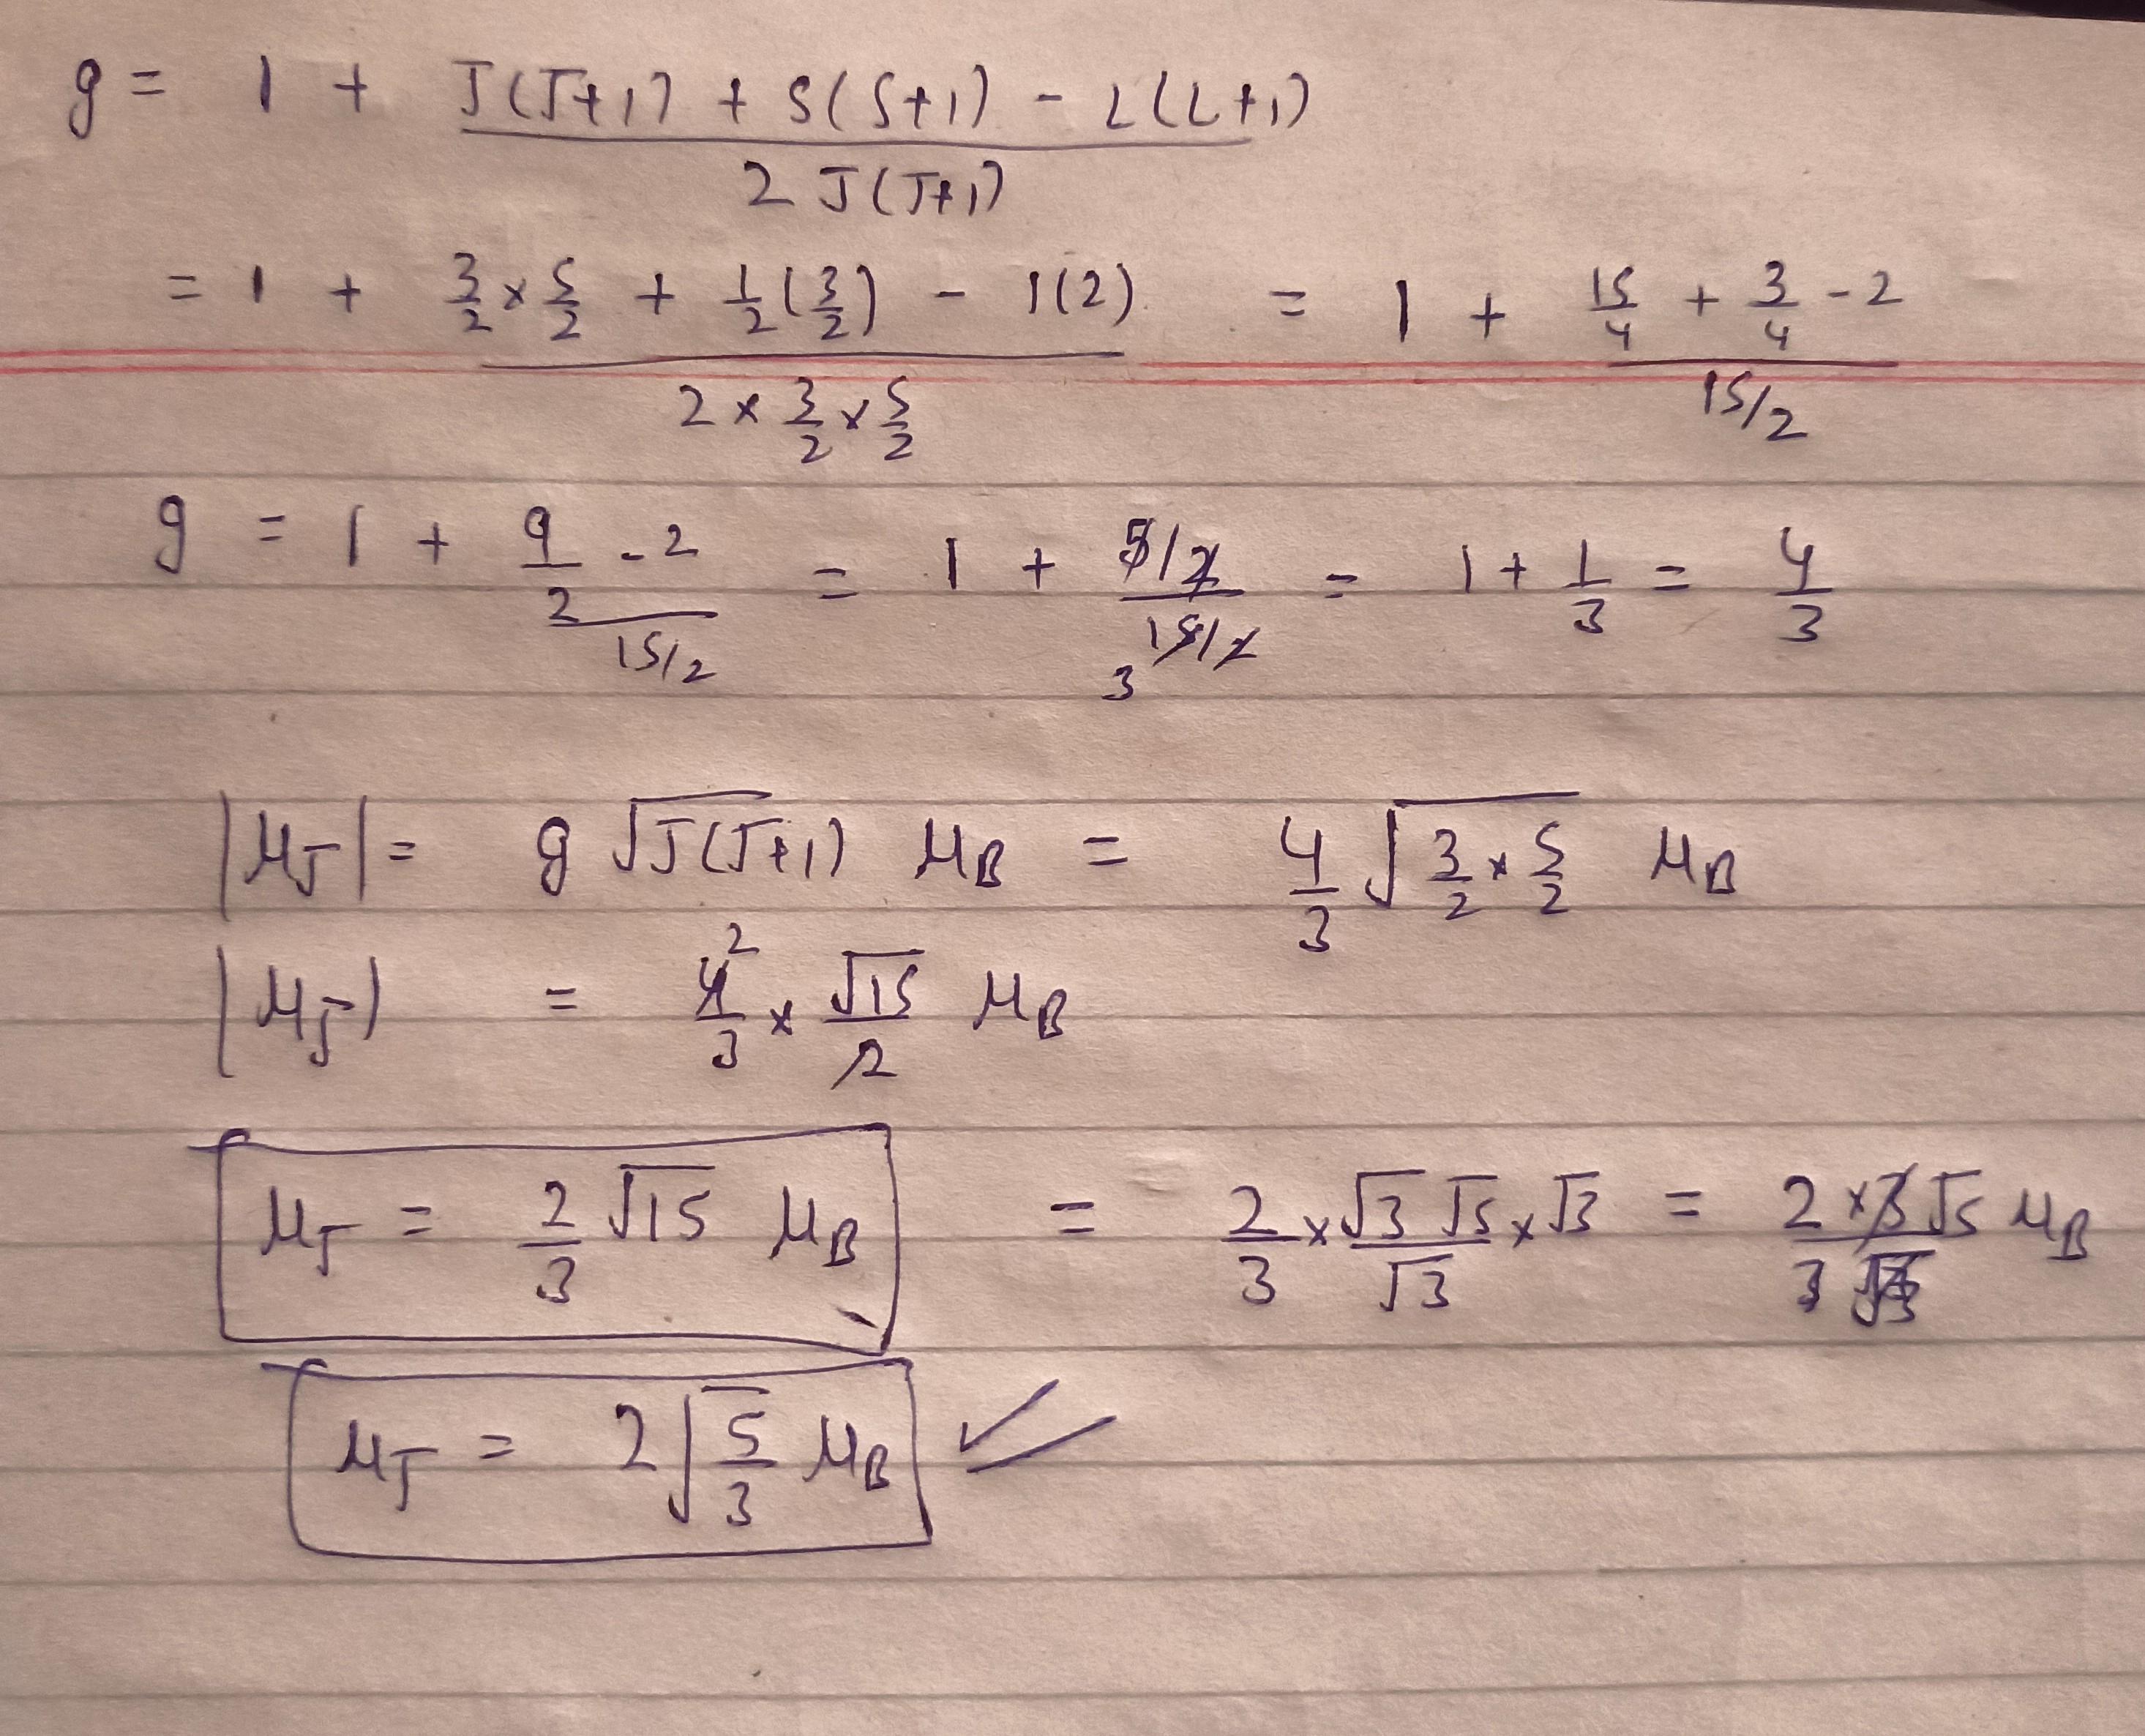 g = 1 + J(J+1) + S(S+1) - L(L+1)
2 J(J+1)
= 1 + 3/2 × 5/2 + 1/2 (3/2) - 1(2) = 1 + 15/4 + 3/4 - 2
2 × 3/2 × 5/2 15/2
g = 1 + 9/2 - 2 = 1 + 5/2 = 1 + 1/3 = 4/3
15/2 3 15/2
|μJ| = g √J(J+1) μB = 4/3 √3/2 × 5/2 μB
|μJ| = 4/3 2 × √15/2 μB
μJ = 2/3 √15 μB = 2/3 × √3 √5/√3 × √3 = 2 × 3 √5 μB
3 √3
μJ = 2 √5/3 μB